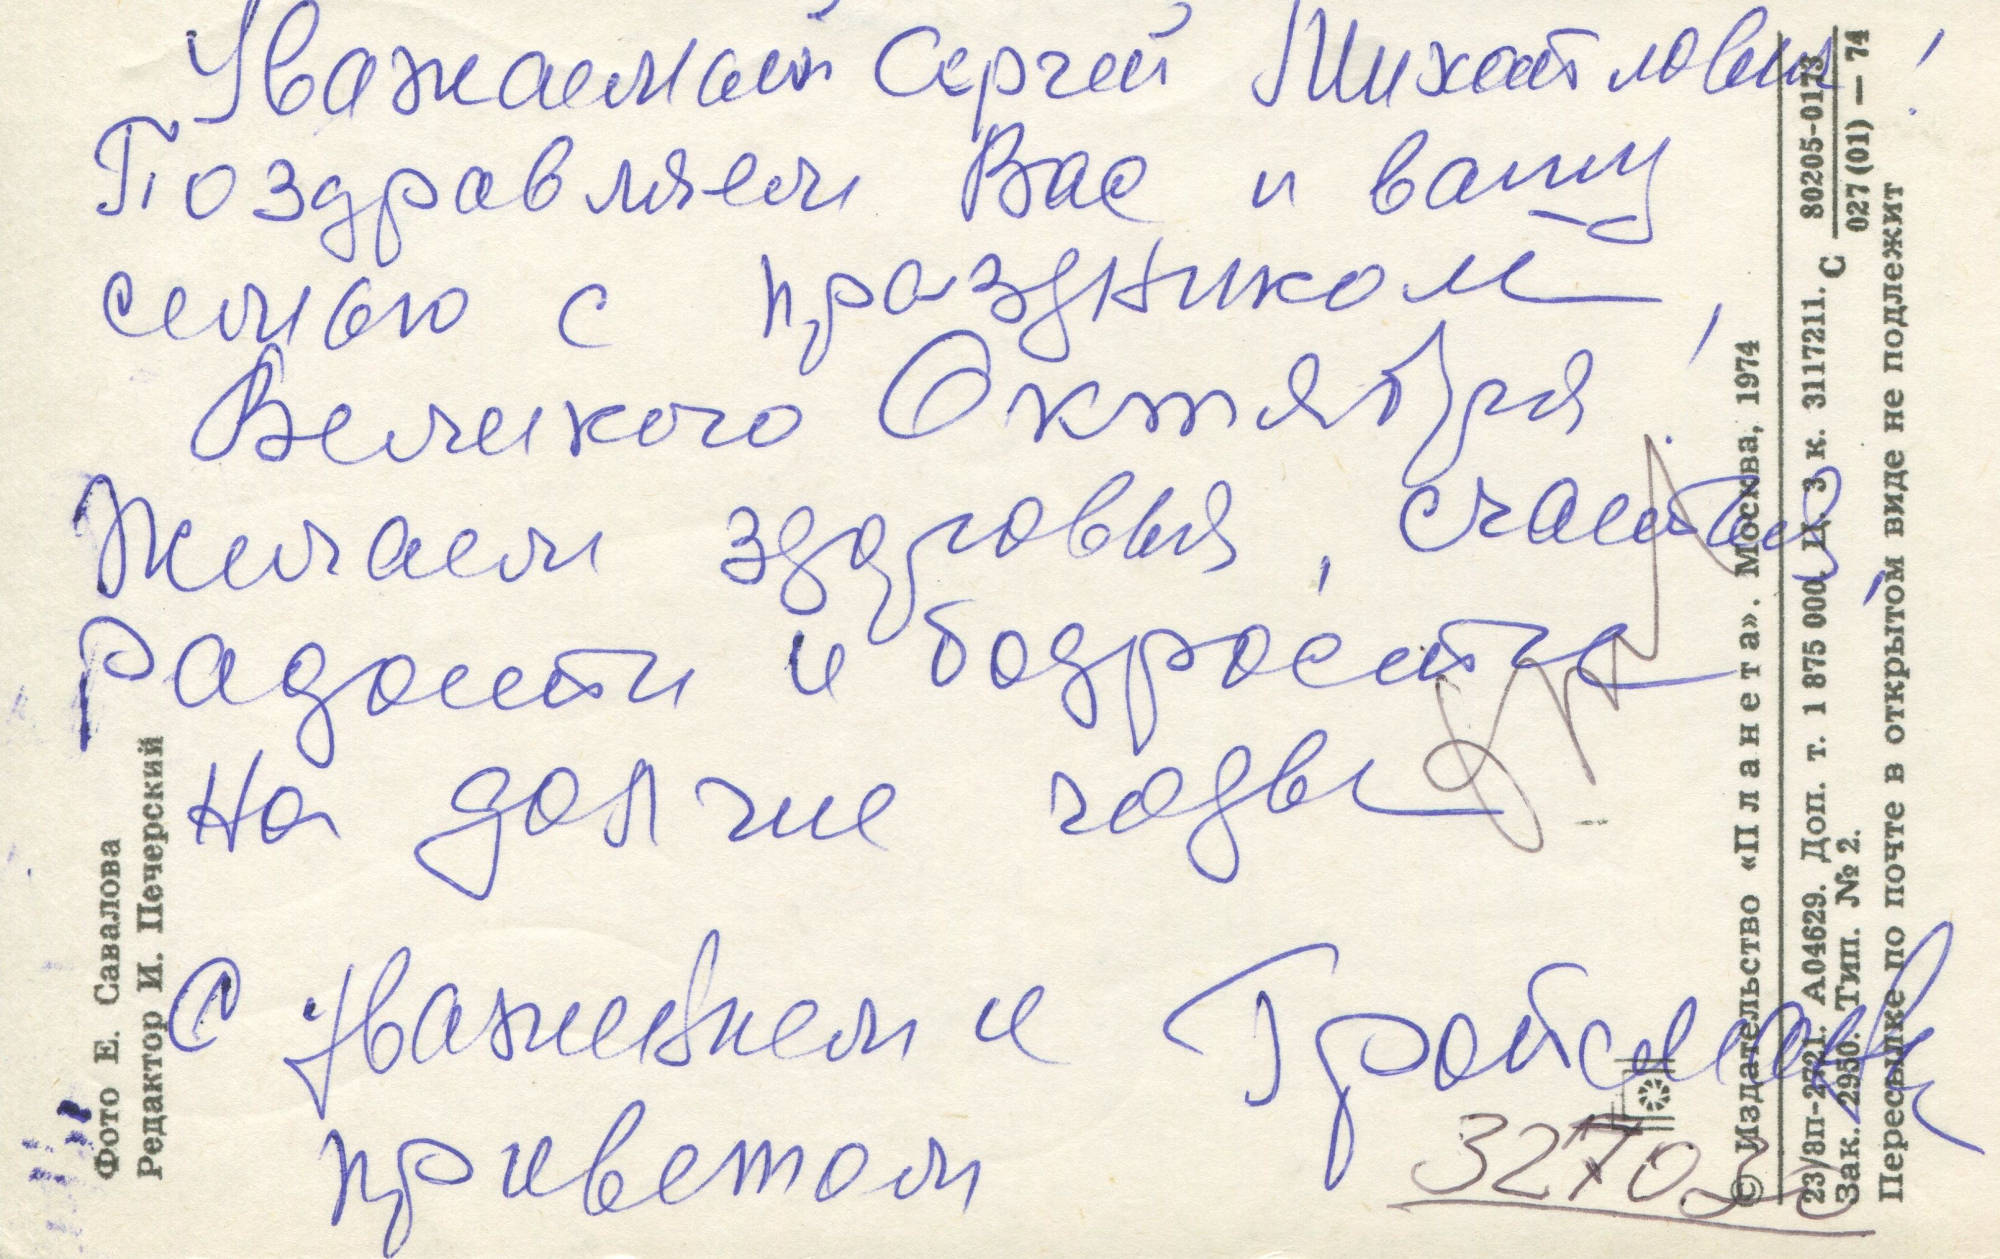 Уважаемый Сергей Михайлович!
Поздравляем Вас и вашу
семью с праздником,
Великого Октября!
Желаем здоровья, счастья,
радости и бодрости
на долгие годы
С уважением и
приветом
Фото Е. Савалова
Редактор И. Печерский
© Издательство «Планета». Москва, 1974
23/зп-2721. А04629. Доп. т. 1 875 000. Ц. 3 к. 3117211. С 80205-0173
027 (01) — 74
Зак. 2950. Тип. № 2.
Пересылке по почте в открытом виде не подлежит